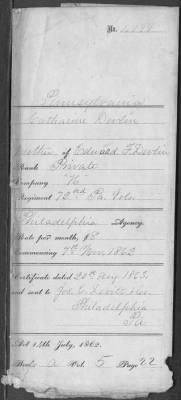 No.
Pennsylvania
Catharine Devlin
Mother of Edward F. Devlin
Rank Private
Company "K"
Regiment 73rd Pa. Vols.
Philadelphia Agency.
Rate per month, $8
Commencing 7th Nov. 1862
Certificate dated 20th Aug 1863,
and sent to Jos. E. Devitt &co
Philadelphia
Pa
Act 14th July, 1862.
Book A Vol. 5 Page 22